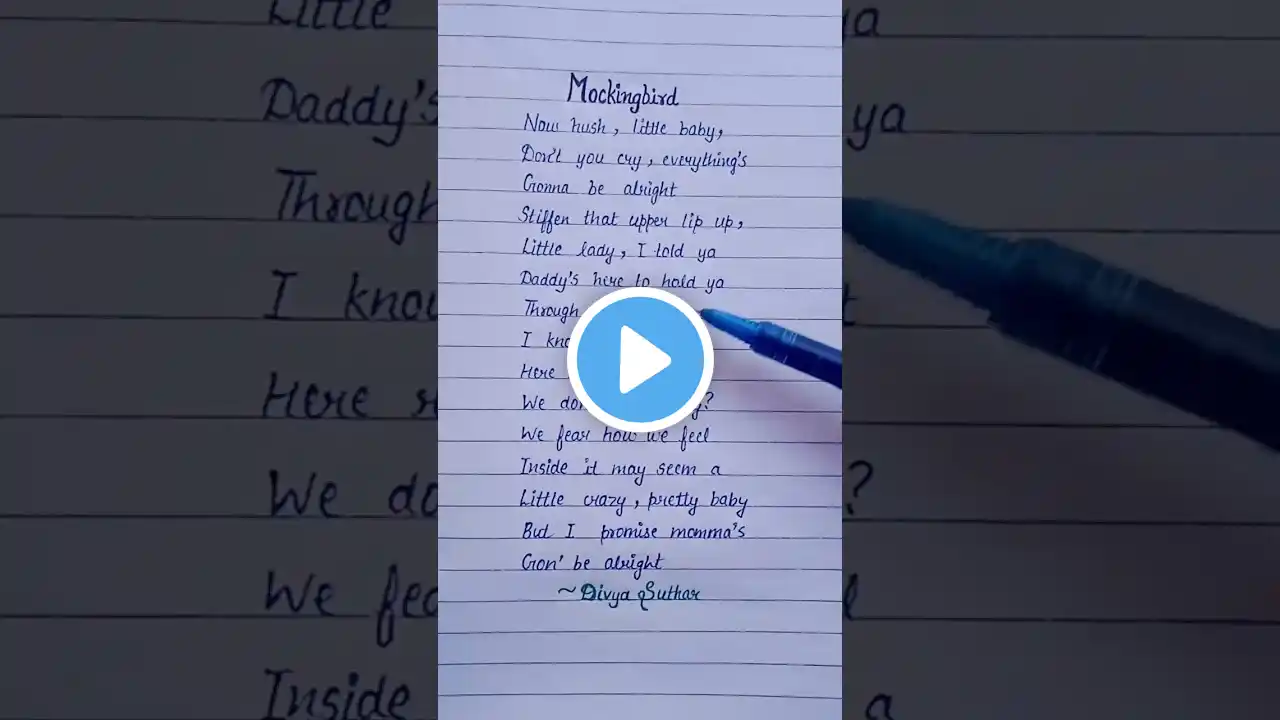 Mockingbird
Now hush, little baby,
Don't you cry, everything's
Gonna be alright
Stiffen that upper lip up,
Little lady, I told ya
Daddy's here to hold ya
Through
I
Here
We
We fear how we feel
Inside it may seem a
Little crazy, pretty baby
But I promise momma's
Gon' be alright
~Divya Suthar